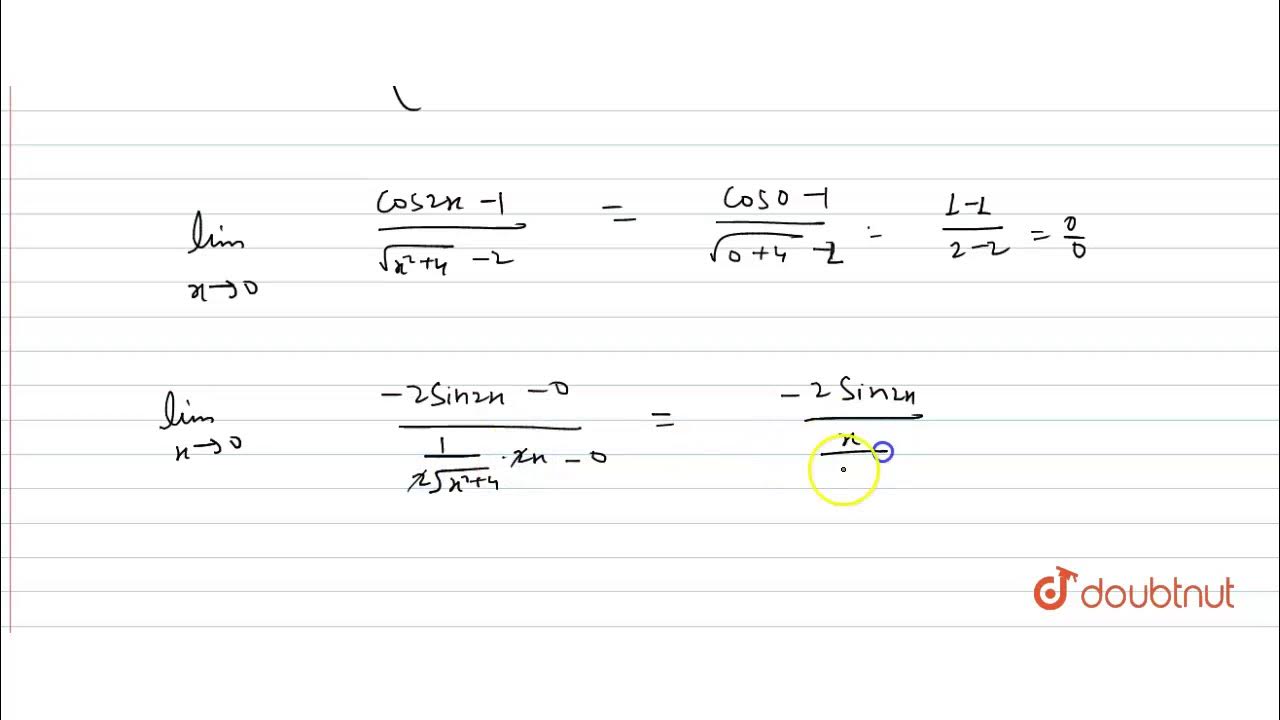 lim x→0 (cos2x − 1)/(√(x²+4) − 2) = (cos0 − 1)/(√(0+4) − 2) = (1−1)/(2−2) = 0/0
lim x→0 (−2sin2x − 0)/(1/(2√(x²+4)) · 2x − 0) = (−2sin2x)/(x/
doubtnut